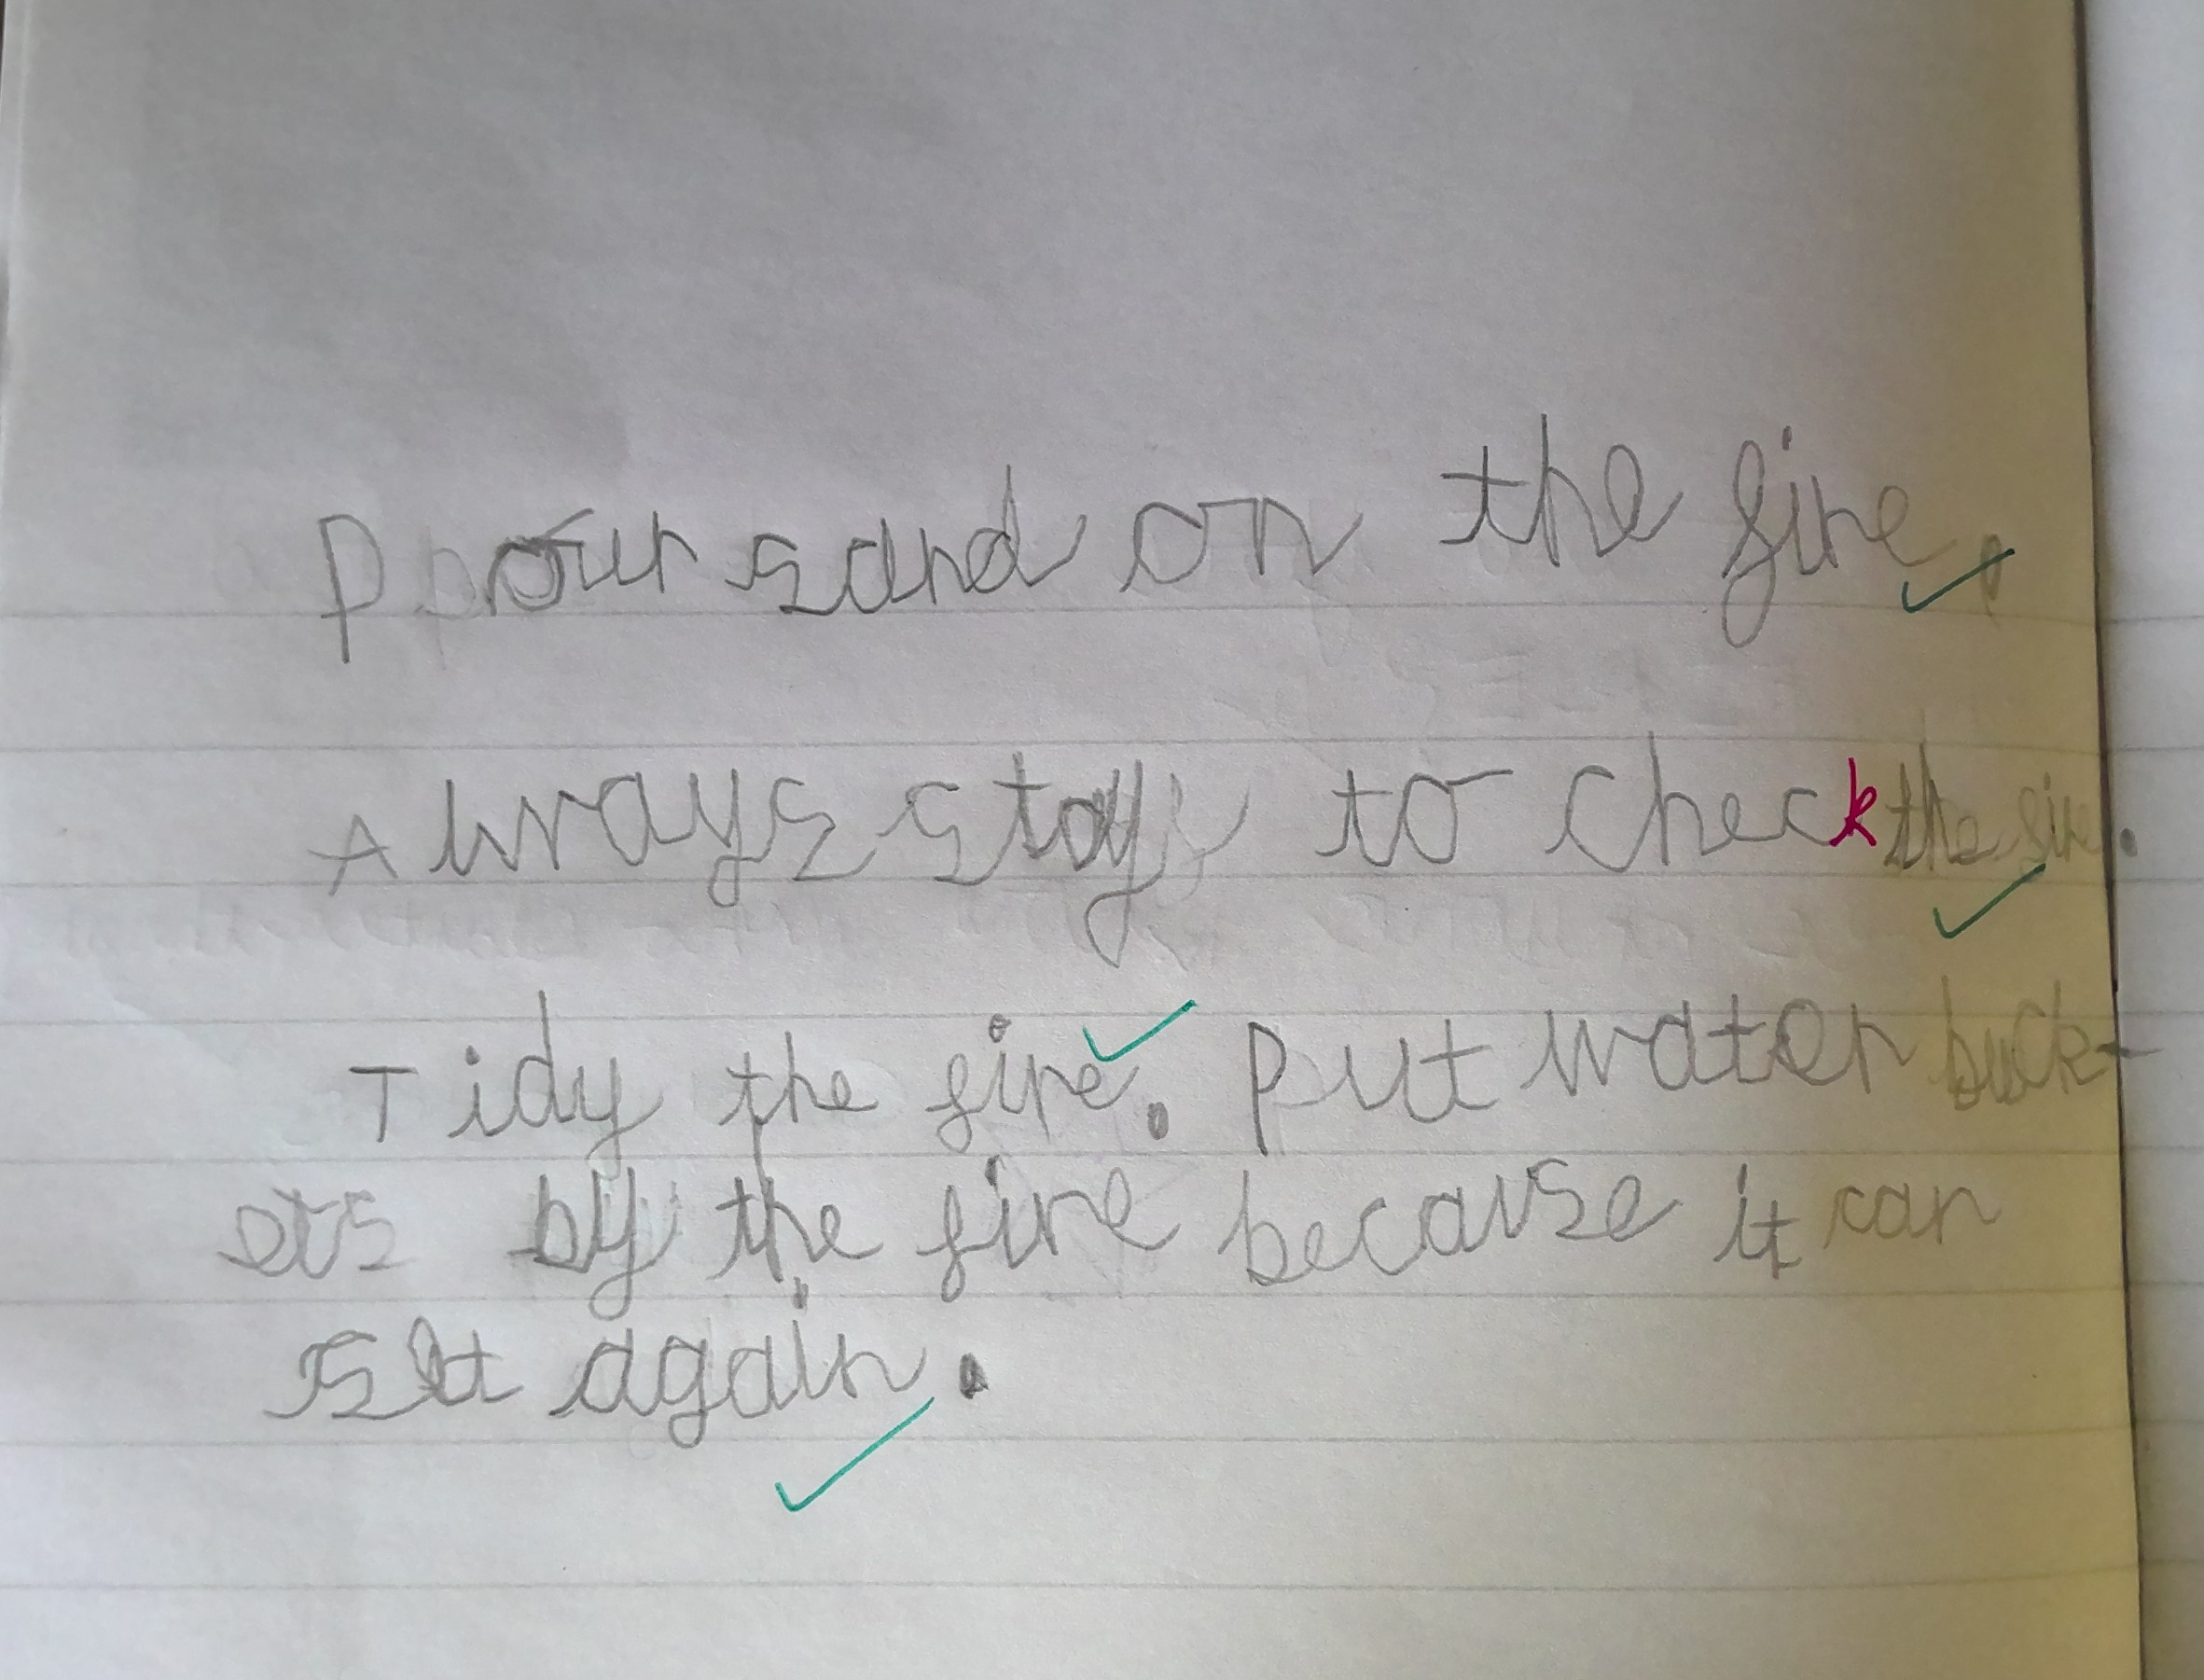 Pour sand on the fire.
Always stay to check the fire.
Tidy the fire. Put water buck-
ets by the fire because it can
set again.